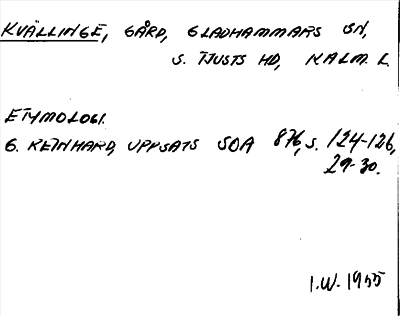 KVÄLLINGE, GÅRD, GLADHAMMARS SN,
S. TJUSTS HD, KALM. L.
ETYMOLOGI.
G. REINHARD, UPPSATS SOA 876, s. 124-126,
29-30.
I.W. 1955